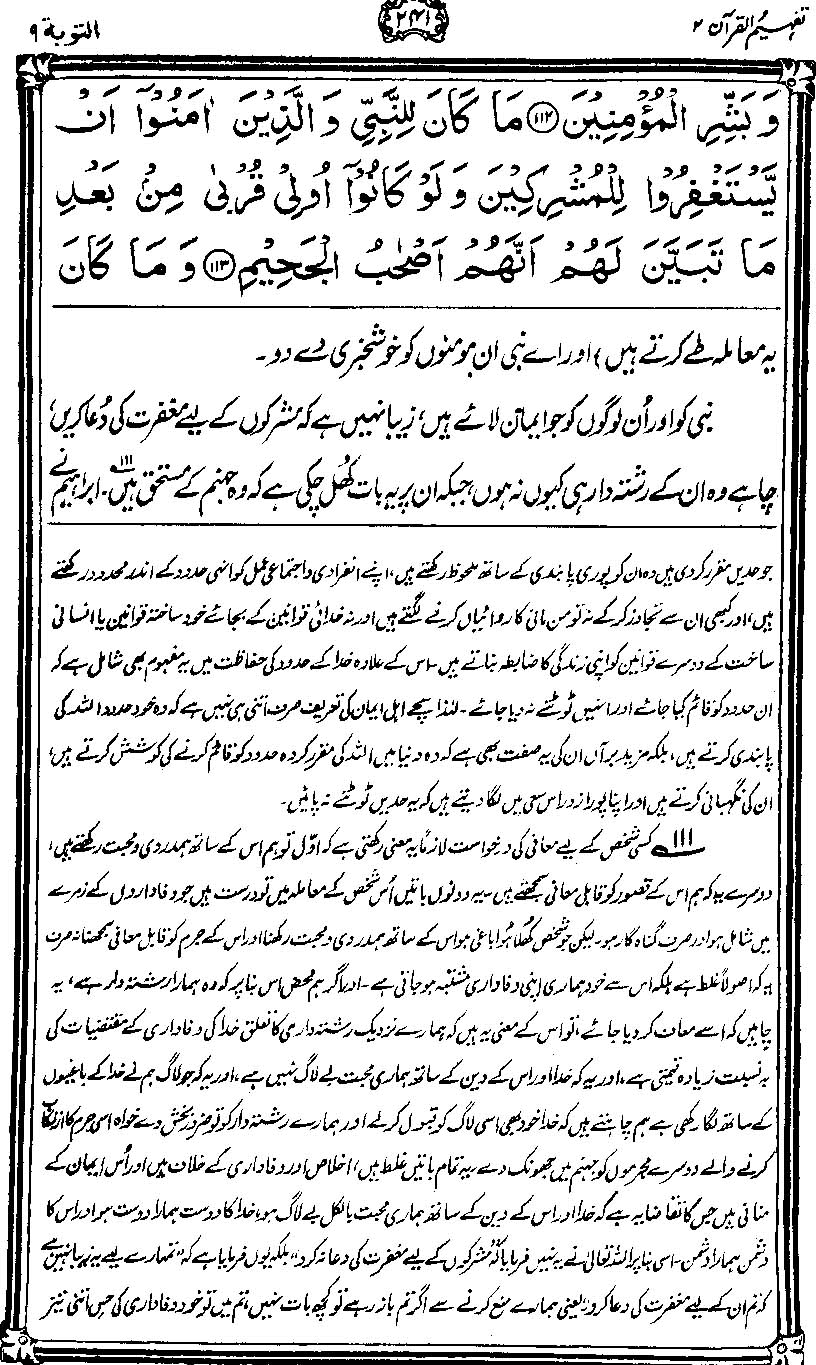 تفہیم القرآن ۲
۲۴۱
التوبۃ ۹
وَ بَشِّرِ الْمُؤْمِنِیْنَ ﴿۱۱۲﴾ مَا کَانَ لِلنَّبِیِّ وَ الَّذِیْنَ اٰمَنُوْۤا اَنْ
یَّسْتَغْفِرُوْا لِلْمُشْرِکِیْنَ وَ لَوْ کَانُوْۤا اُولِیْ قُرْبٰی مِنْۢ بَعْدِ
مَا تَبَیَّنَ لَهُمْ اَنَّهُمْ اَصْحٰبُ الْجَحِیْمِ ﴿۱۱۳﴾ وَ مَا کَانَ
یہ معاملہ طے کرتے ہیں) اور اے نبی ان مومنوں کو خوشخبری دے دو۔
نبی کو اور اُن لوگوں کو جو ایمان لائے ہیں، زیبا نہیں ہے کہ مشرکوں کے لیے مغفرت کی دُعا کریں،
چاہے وہ ان کے رشتہ دار ہی کیوں نہ ہوں، جبکہ ان پر یہ بات کھُل چکی ہے کہ وہ جہنم کے مستحق ہیں۱۱۱۔ ابراہیمؑ نے
جو حدیں مقرر کردی ہیں وہ ان کو پوری پابندی کے ساتھ ملحوظ رکھتے ہیں، اپنے انفرادی و اجتماعی عمل کو انہی حدود کے اندر محدود رکھتے
ہیں، اور کبھی ان سے تجاوز کرکے نہ تو من مانی کارروائیاں کرنے لگتے ہیں اور نہ خدائی قوانین کے بجائے خود ساختہ قوانین یا انسانی
ساخت کے دوسرے قوانین کو اپنی زندگی کا ضابطہ بناتے ہیں۔ اس کے علاوہ خدا کے حدود کی حفاظت میں یہ مفہوم بھی شامل ہے کہ
ان حدود کو قائم کیا جائے اور انہیں ٹوٹنے نہ دیا جائے۔ لہٰذا سچے اہل ایمان کی تعریف صرف اتنی ہی نہیں ہے کہ وہ خود حدود اللہ کی
پابندی کرتے ہیں، بلکہ مزید برآں ان کی یہ صفت بھی ہے کہ وہ دنیا میں اللہ کی مقرر کردہ حدود کو قائم کرنے کی کوشش کرتے ہیں،
ان کی نگہبانی کرتے ہیں اور اپنا پورا زور اس سعی میں لگا دیتے ہیں کہ یہ حدیں ٹوٹنے نہ پائیں۔
۱۱۱ کسی شخص کے لیے معافی کی درخواست لازماً یہ معنی رکھتی ہے کہ اوّل تو ہم اس کے ساتھ ہمدردی و محبت رکھتے ہیں،
دوسرے یہ کہ ہم اس کے قصور کو قابلِ معافی سمجھتے ہیں۔ یہ دونوں باتیں اُس شخص کے معاملہ میں تو درست ہیں جو وفاداروں کے زمرے
میں شامل ہو اور صرف گناہ گار ہو۔ لیکن جو شخص کھُلا ہُوا باغی ہو اس کے ساتھ ہمدردی و محبت رکھنا اور اس کے جرم کو قابل معافی سمجھنا نہ صرف
یہ کہ اصولاً غلط ہے بلکہ اس سے خود ہماری اپنی وفاداری مشتبہ ہو جاتی ہے۔ اور اگر ہم محض اس بنا پر کہ وہ ہمارا رشتہ دار ہے، یہ
چاہیں کہ اسے معاف کر دیا جائے، تو اس کے معنی یہ ہیں کہ ہمارے نزدیک رشتہ داری کا تعلق خدا کی وفاداری کے مقتضیات کی
بہ نسبت زیادہ قیمتی ہے، اور یہ کہ خدا اور اس کے دین کے ساتھ ہماری محبت بے لاگ نہیں ہے، اور یہ کہ جو لاگ ہم نے خدا کے باغیوں
کے ساتھ لگا رکھی ہے ہم چاہتے ہیں کہ خدا خود بھی اسی لاگ کو قبول کرلے اور ہمارے رشتہ دار کو تو ضرور بخش دے خواہ اسی جرم کا ارتکاب
کرنے والے دوسرے مجرموں کو جہنم میں جھونک دے۔ یہ تمام باتیں غلط ہیں، اخلاص اور وفاداری کے خلاف ہیں اور اُس ایمان کے
منافی ہیں جس کا تقاضا یہ ہے کہ خدا اور اس کے دین کے ساتھ ہماری محبت بالکل بے لاگ ہو، خدا کا دوست ہمارا دوست ہو اور اس کا
دشمن ہمارا دشمن۔ اسی بنا پر اللہ تعالیٰ نے یہ نہیں فرمایا کہ ”مشرکوں کے لیے مغفرت کی دعا نہ کرو“ بلکہ یوں فرمایا ہے کہ ”تمہارے لیے یہ زیبا نہیں ہے
کہ تم ان کے لیے مغفرت کی دعا کرو“۔ یعنی ہمارے منع کرنے سے اگر تم باز رہے تو کچھ بات نہیں، تم میں تو خود وفاداری کی حِس اتنی تیز